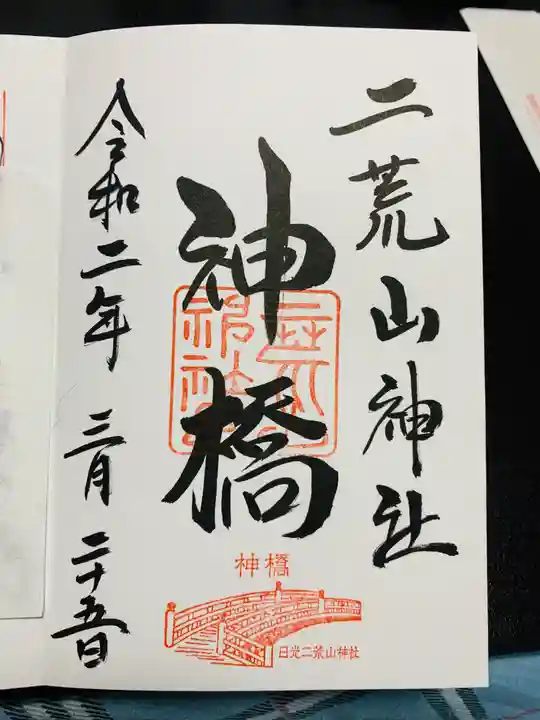 二荒山神社
神橋
令和二年 三月 二十五日
神橋
日光二荒山神社